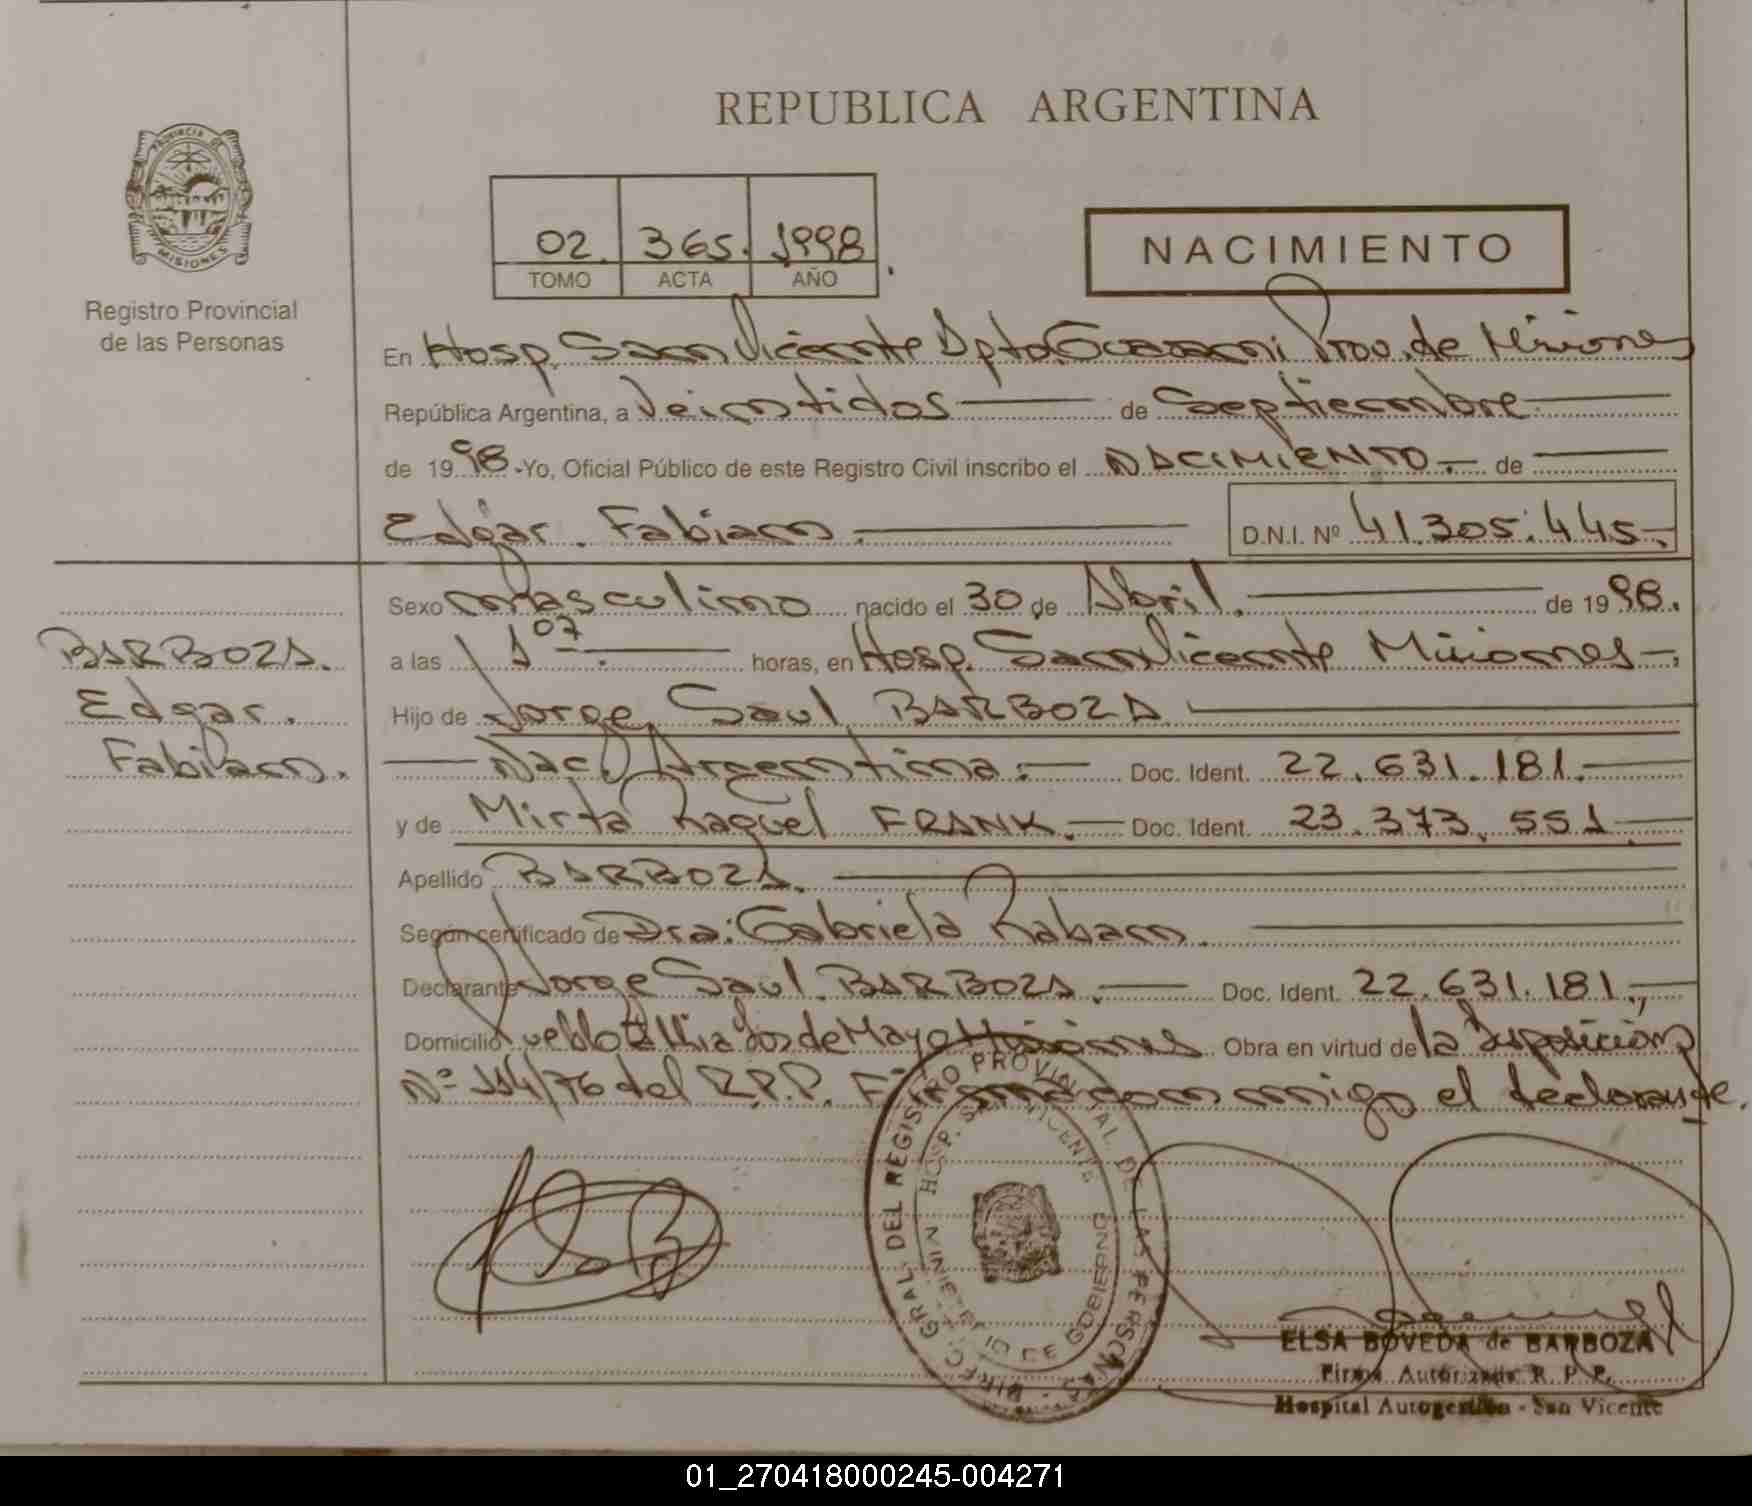 REPUBLICA ARGENTINA
PROVINCIA DE
MISIONES
Registro Provincial
de las Personas
02. 365. 1998
TOMO ACTA AÑO
NACIMIENTO
En Hosp. San Vicente Dpto Guarani Prov. de Misiones
República Argentina, a Veintidos de Septiembre
de 1998.-Yo, Oficial Público de este Registro Civil inscribo el NACIMIENTO.- de
Edgar. Fabian. D.N.I. Nº 41.305.445.-
Sexo masculino nacido el 30 de Abril. de 1998.
BARBOZA. a las 1 07. horas, en Hosp. San Vicente Misiones-.
Edgar. Hijo de Jorge Saul BARBOZA
Fabian. Nac. Argentina. Doc. Ident. 22.631.181.-
y de Mirta Raquel FRANK.- Doc. Ident. 23.373.551
Apellido BARBOZA.
Según certificado de Dra: Gabriela Raban.
Declarante Jorge Saul BARBOZA.- Doc. Ident. 22.631.181.,-
Domicilio Pueblo de Mayo Misiones Obra en virtud de la Disposición
Nº 114/76 del R.P.P. Firma conmigo el declarante.
DIREC. GRAL. DEL REGISTRO PROVINCIAL DE LAS PERSONAS
HOSP. SAN VICENTE
DE GOBIERNO
ELSA BOVEDA de BARBOZA
Firma Autorizada R. P. P.
Hospital Autogestión - San Vicente
01_270418000245-004271